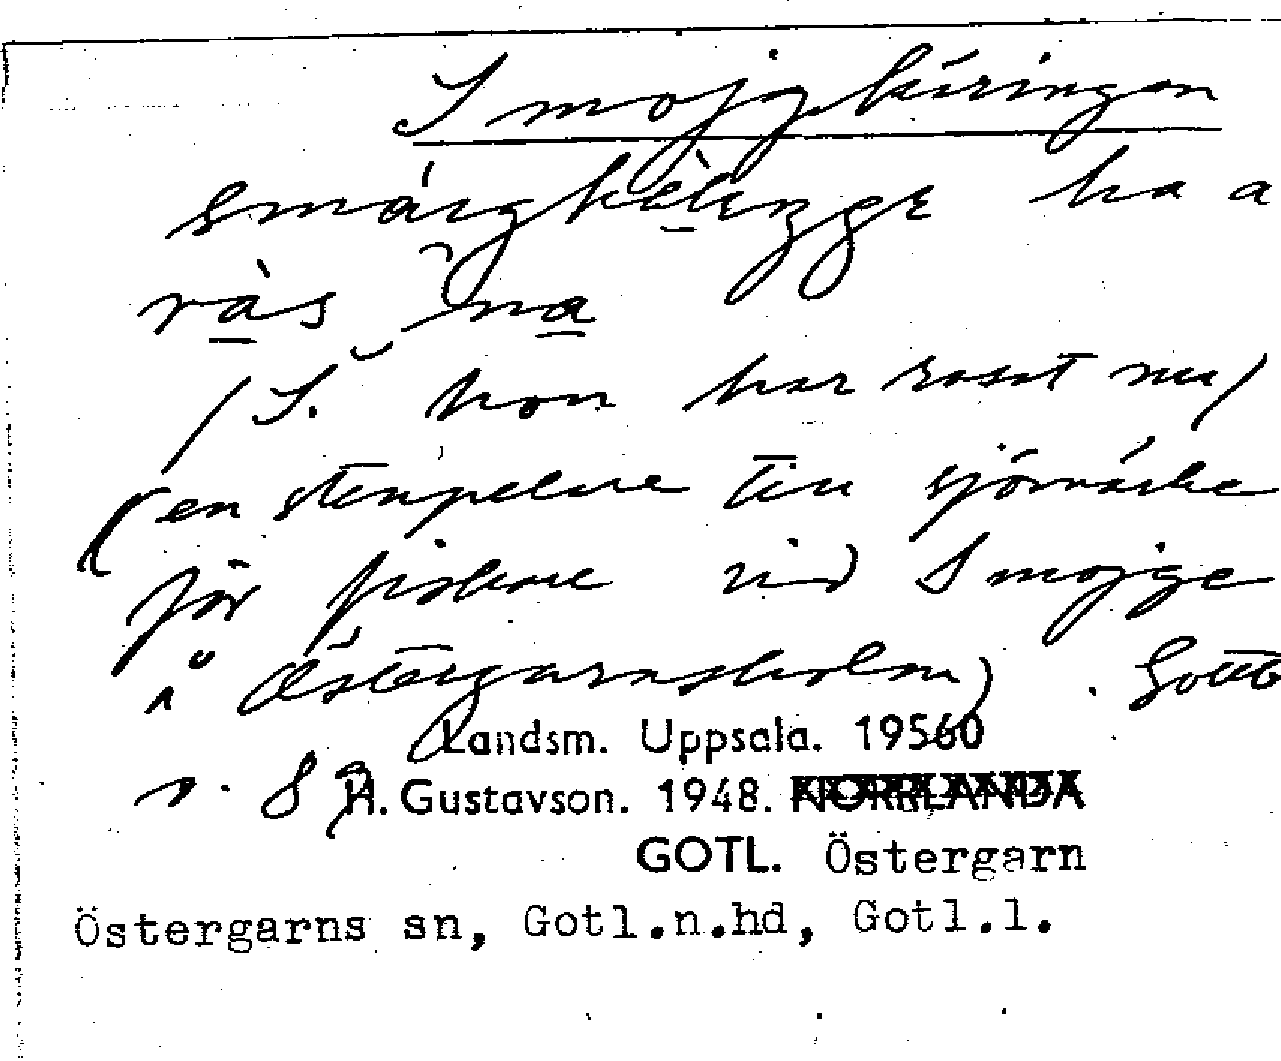 Smojgkäringen
smái̯gkè̱lıŋge ha a
rà̱s na̱
/S. hon har rasat nu/
(en stenpelare till sjömärke
för fiskare vid Smojge
å Östergarnsholm). Gottb
s. 82
Landsm. Uppsala. 19560
H. Gustavson. 1948. NORRLANDA
GOTL. Östergarn
Östergarns sn, Gotl.n.hd, Gotl.l.